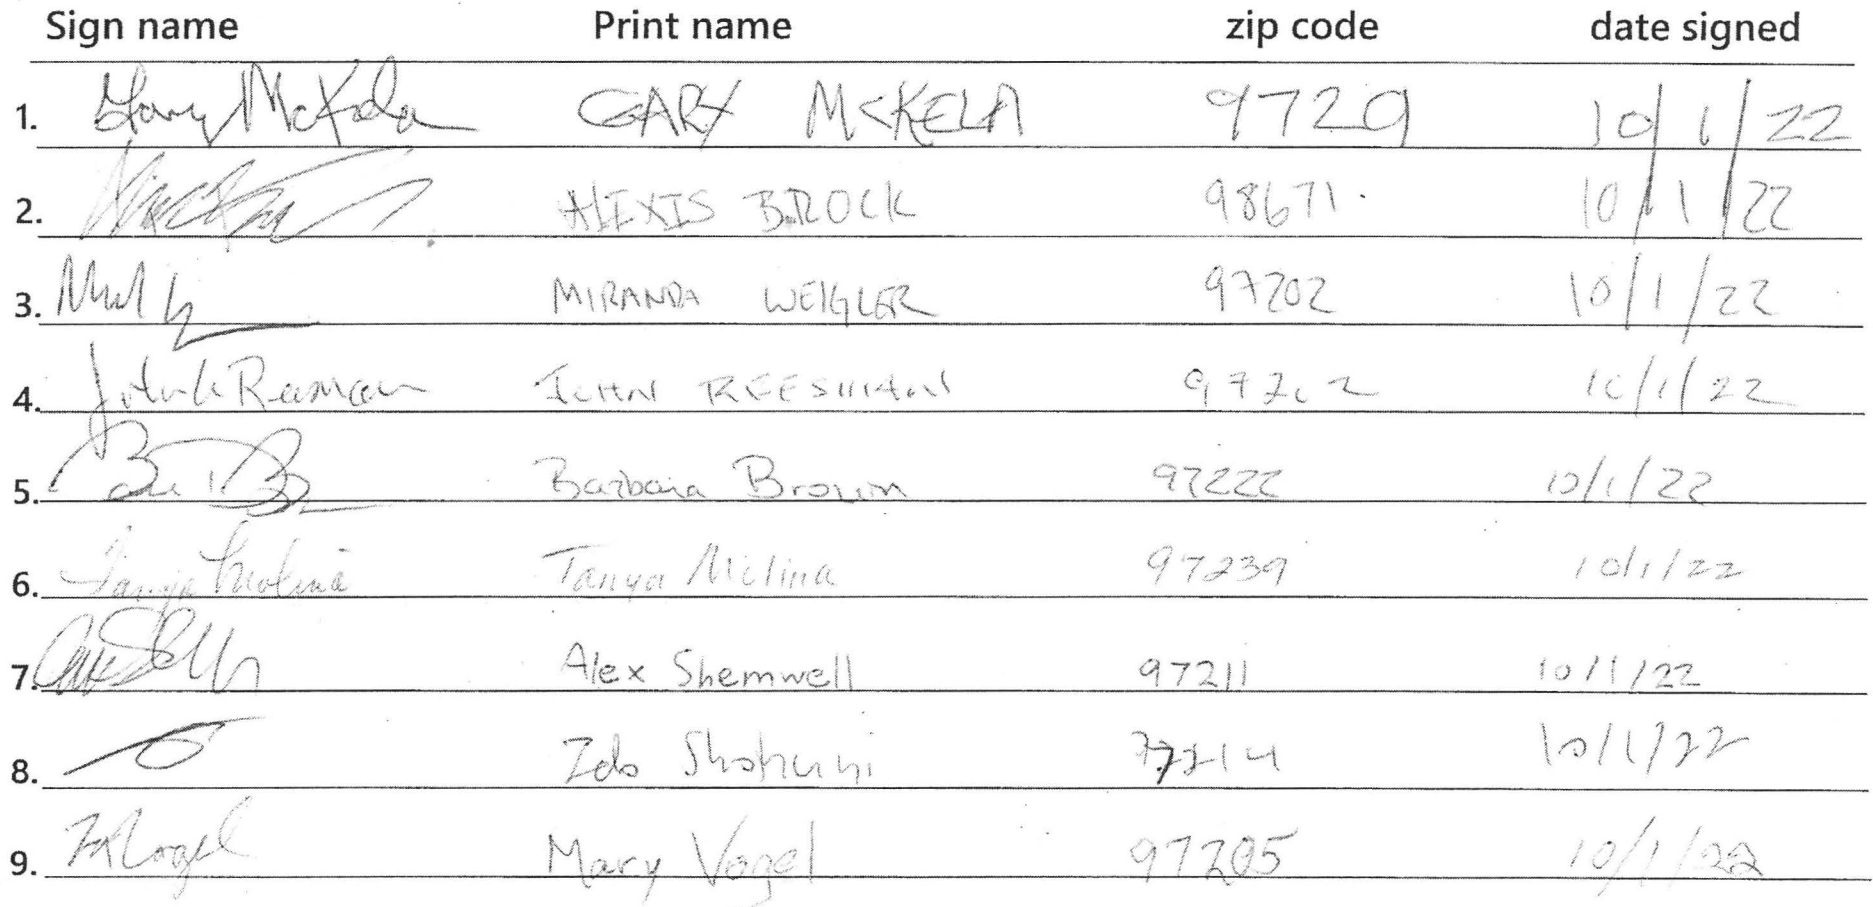 Sign name Print name zip code date signed
1. Gary McKela GARY MCKELA 9720 10/1/22
2. ALEXIS BROCK 98671 10/1/22
3. MIRANDA WEIGLER 97202 10/1/22
4. John Reesman JOHN REESMAN 97202 10/1/22
5. Barbara Brown 97222 10/1/22
6. Tanya Molina Tanya Molina 97239 10/1/22
7. Alex Shemwell 97211 10/1/22
8. 10/1/22
9. Mary Vogel 97205 10/1/22